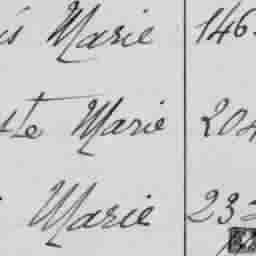 is Marie 146
ste Marie 204
Marie 232